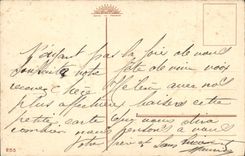 N'ayant pas la joie de vous
souhaiter votre fête de vive voix
recevez chère avec nos
plus affectueux baisers cette
petite carte qui vous dira
combien nous pensons à vous
Votre
255